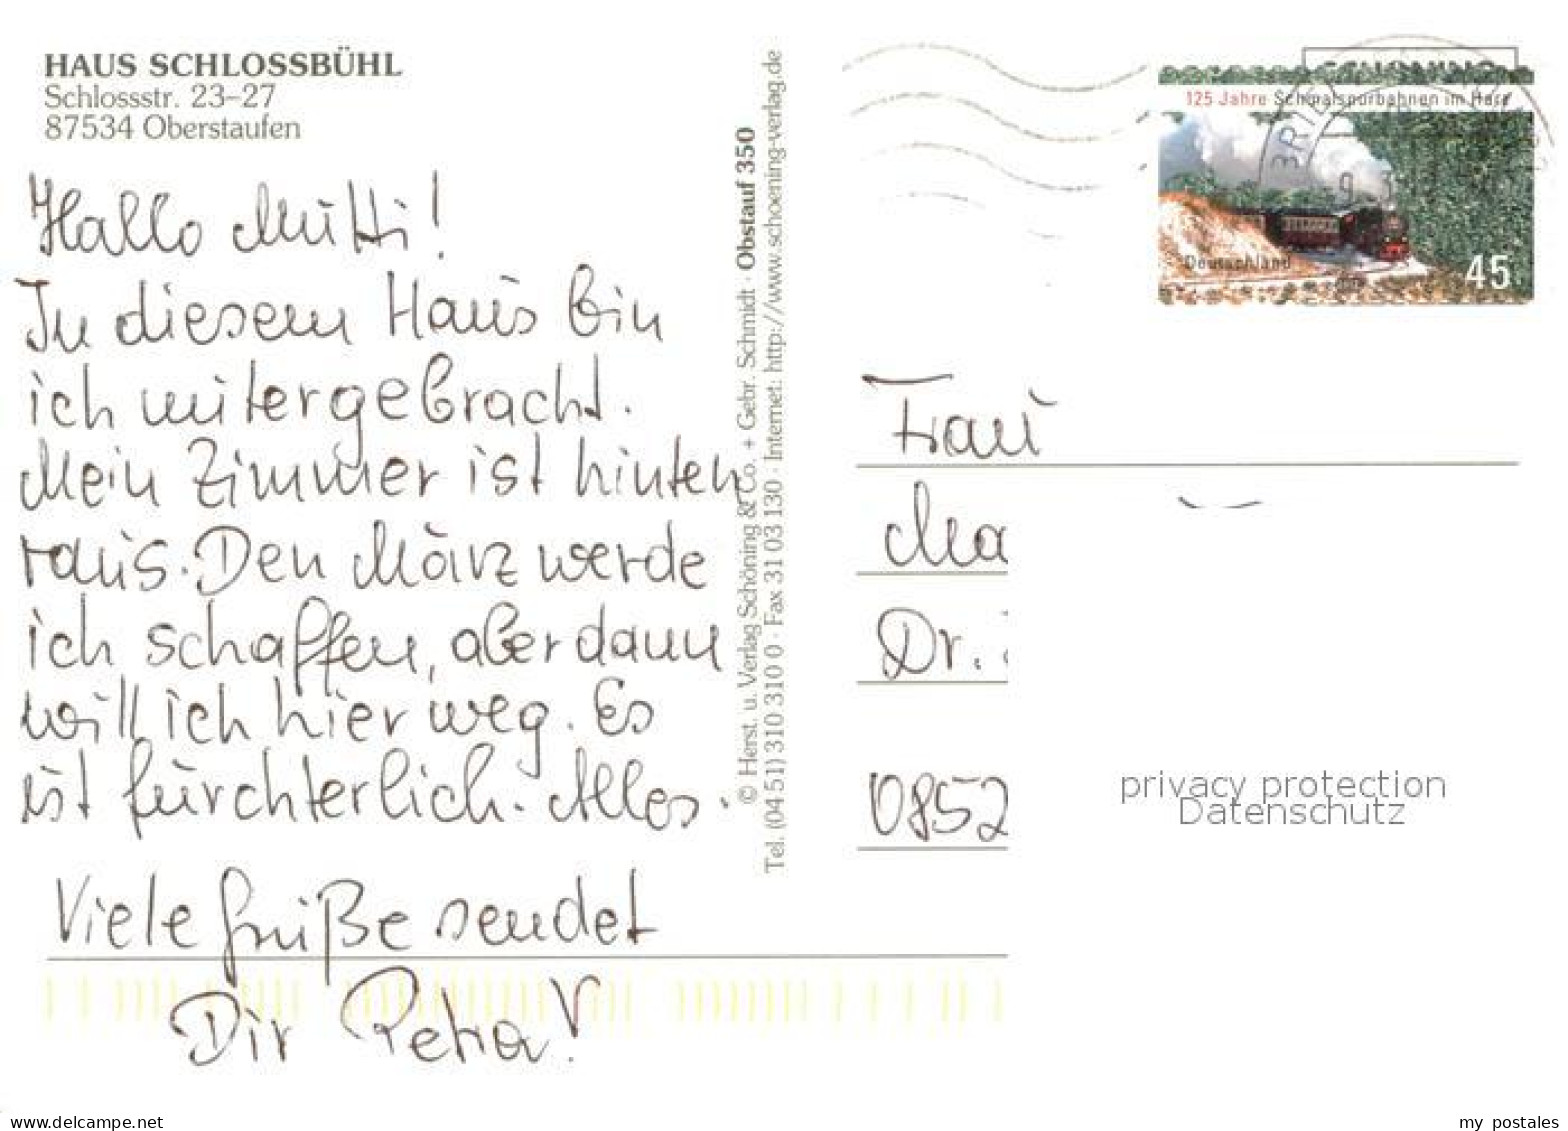 HAUS SCHLOSSBÜHL
Schlossstr. 23-27
87534 Oberstaufen
Hallo Mutti!
In diesem Haus bin
ich untergebracht.
Mein Zimmer ist hinten
raus. Den März werde
ich schaffen, aber dann
will ich hier weg. Es
ist fürchterlich. Alles.
Viele Grüße sendet
Dir Petra!
© Herst. u. Verlag Schöning & Co. + Gebr. Schmidt · Obstauf 350
Tel. (04 51) 310 310 0 · Fax 31 03 130 · Internet: http://www.schoening-verlag.de
125 Jahre Schmalspurbahnen im Harz
Deutschland
45
Frau
Ma
Dr.
0852
privacy protection
Datenschutz
www.delcampe.net
my_postales